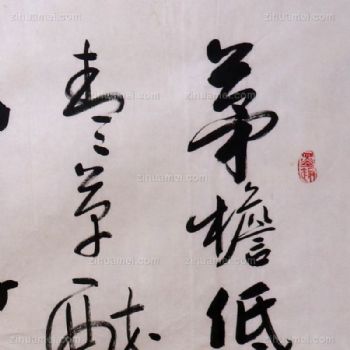 茅檐低
青々草醉
zihuamei.com
zihuamei.com
zihuamei.com
zihuamei.com
zihuamei.com